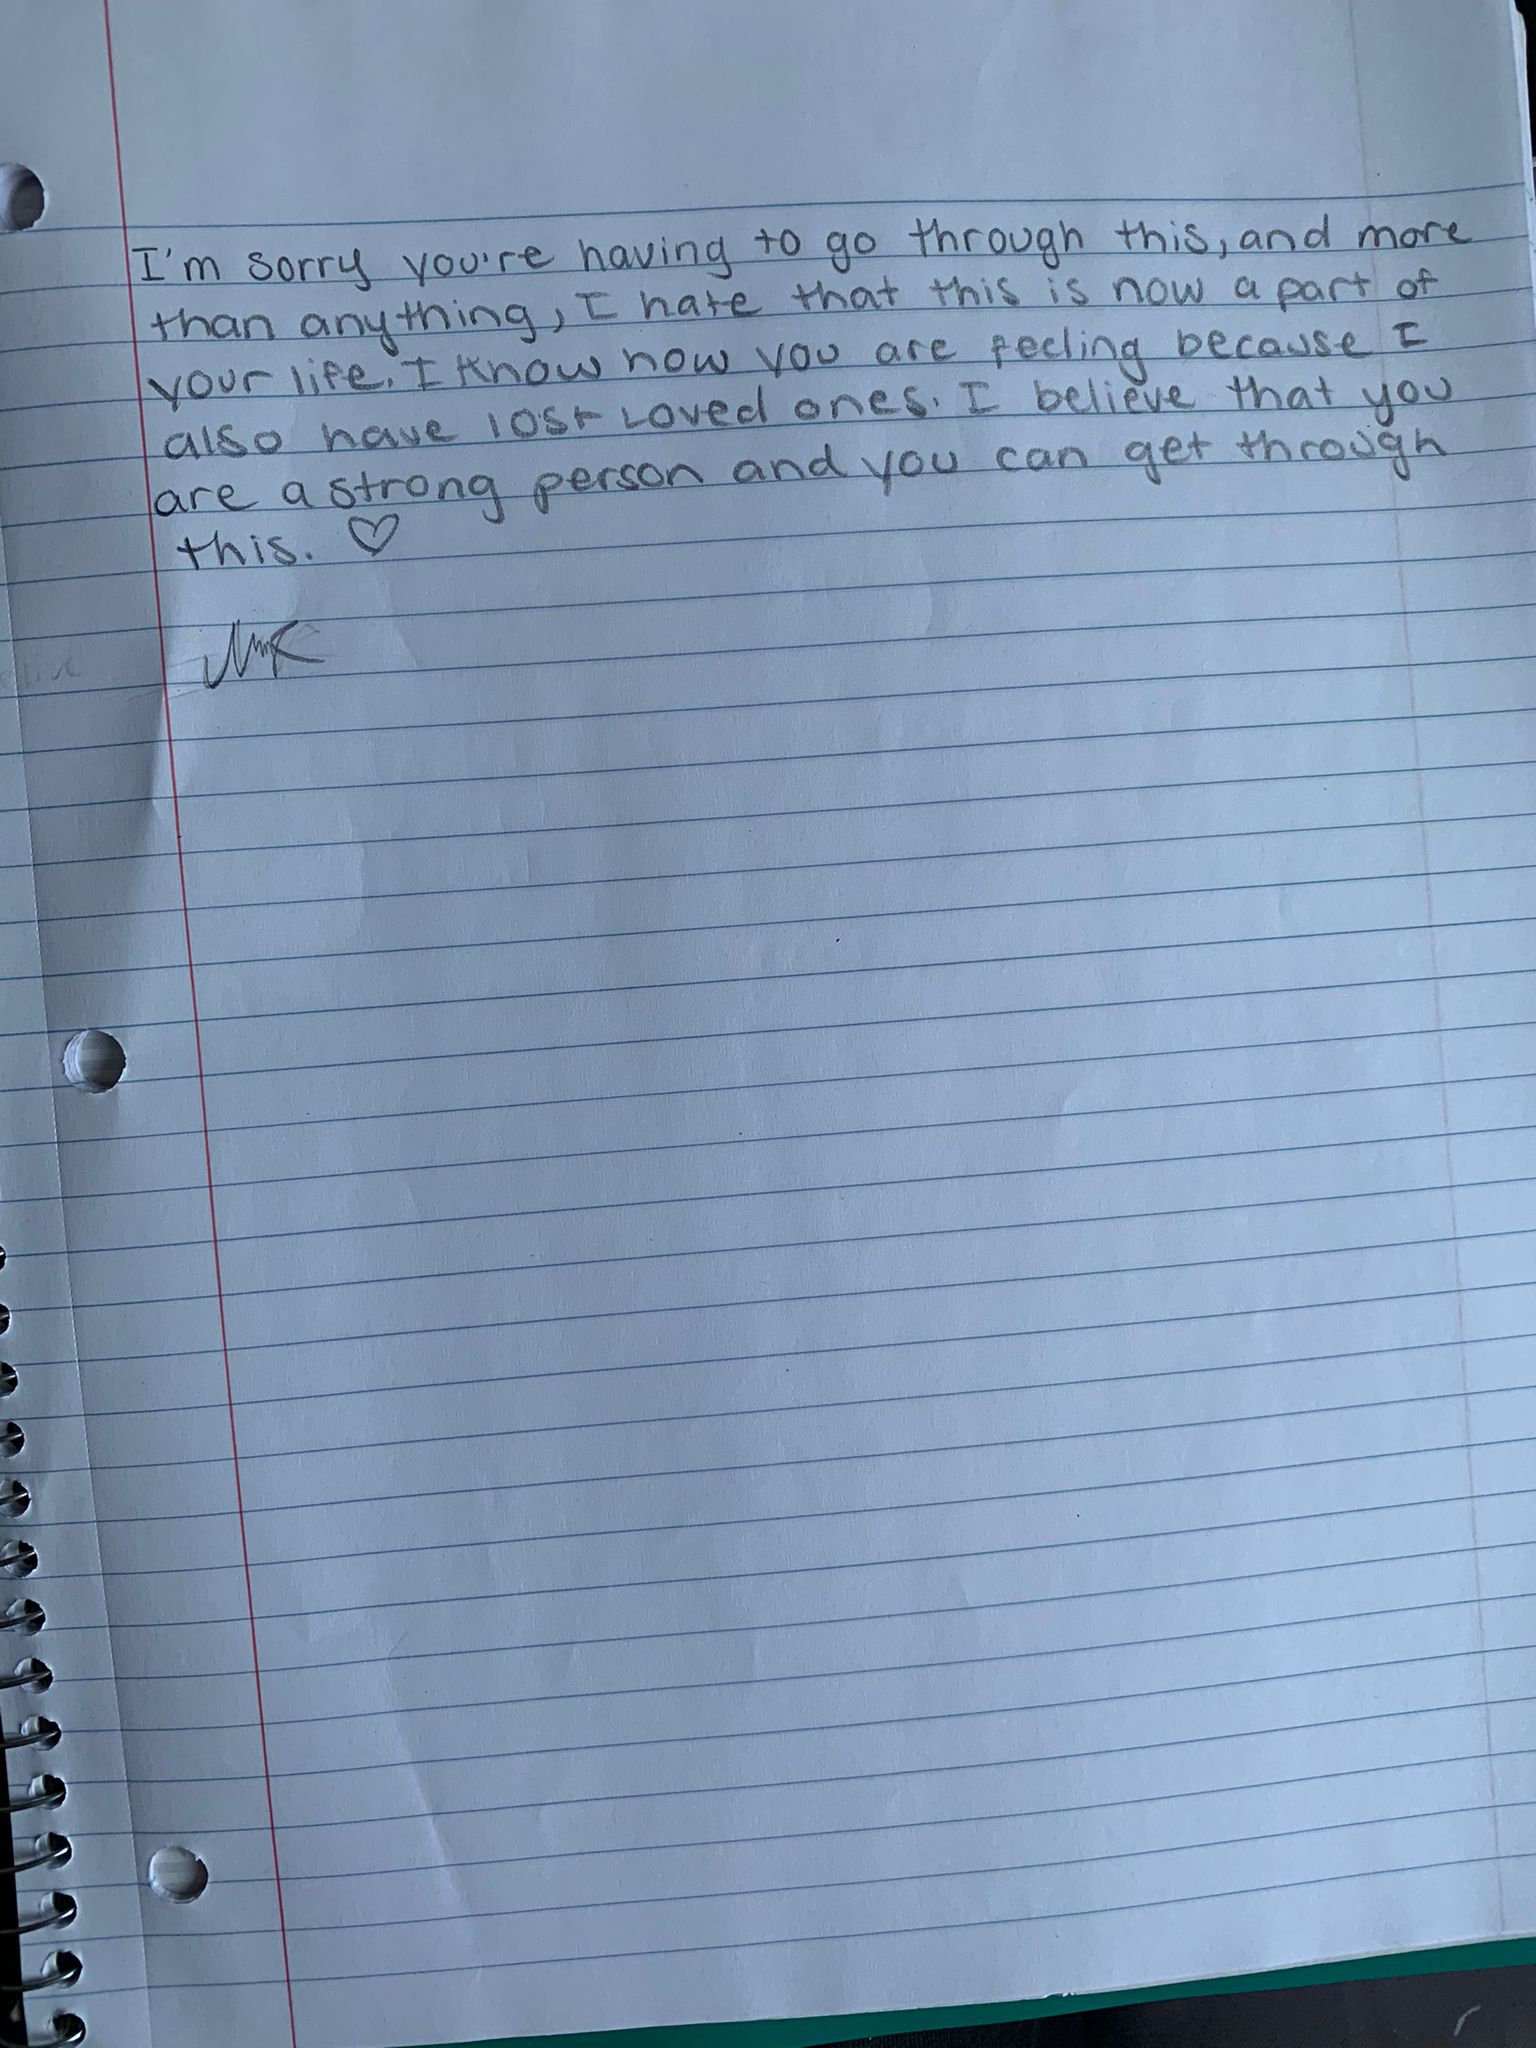 I'm sorry you're having to go through this, and more
than anything, I hate that this is now a part of
your life. I know how you are feeling because I
also have lost loved ones. I believe that you
are a strong person and you can get through
this. ♡